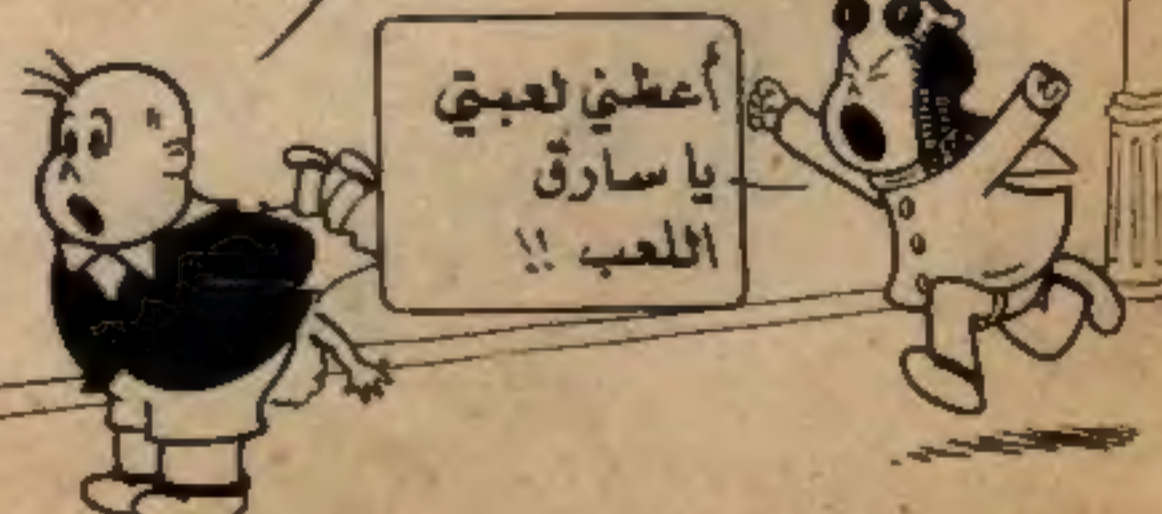 أعطني لعبتي
يا سارق
اللعب !!